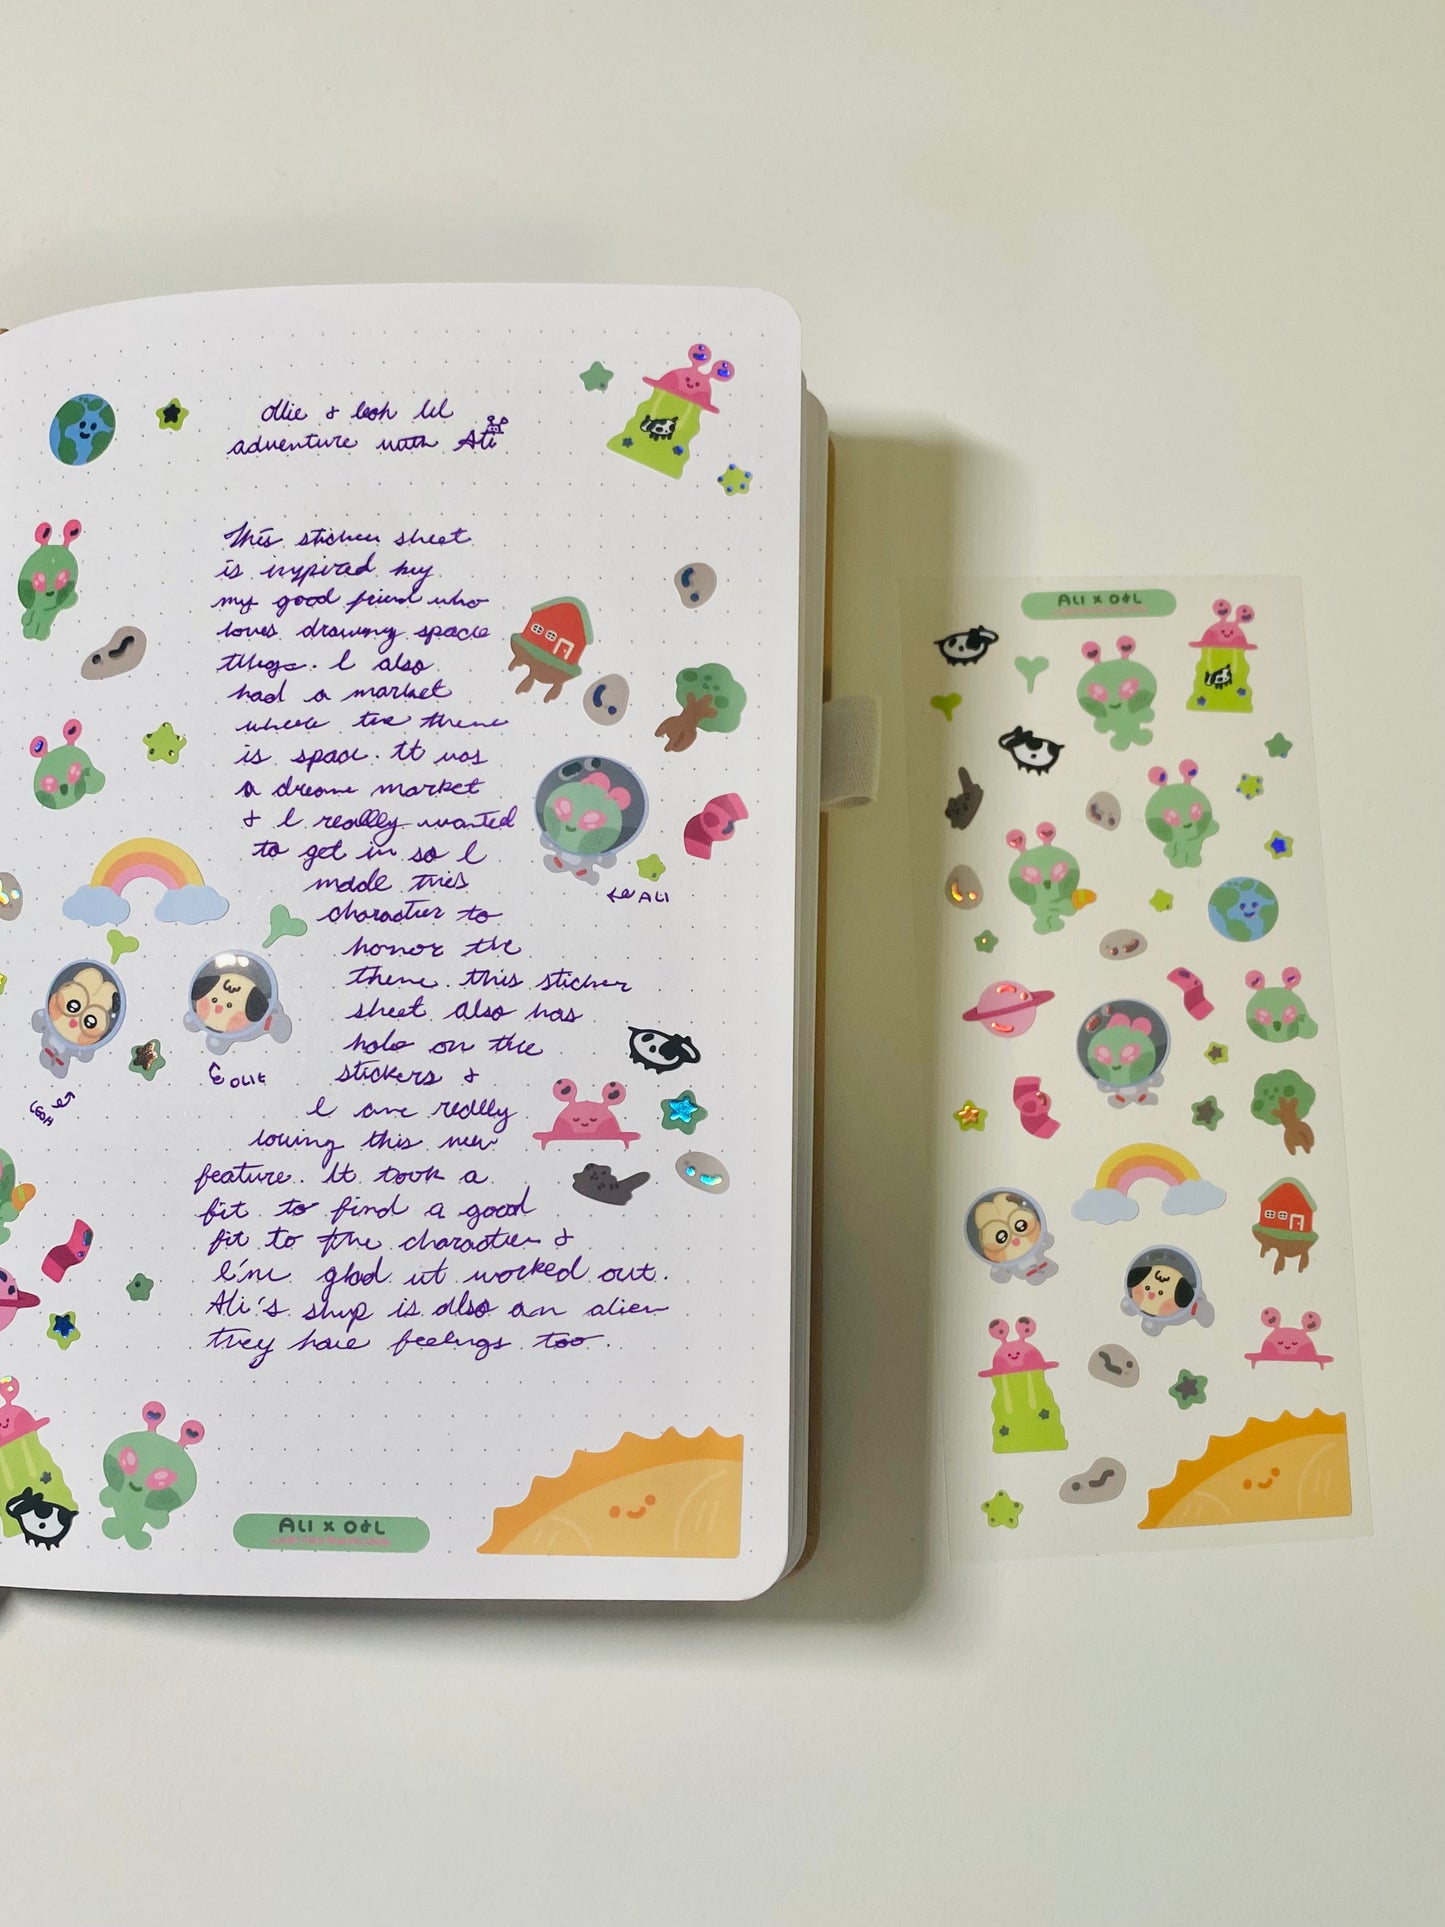 Ollie & Leoh lil
adventure with Ali
This sticker sheet
is inspired by
my good friend who
loves drawing space
things. I also
had a market
where the theme
is space. It was
a dream market
& I really wanted
to get in so I
made this
character to
honor the
theme. This sticker
sheet also has
holo on the
stickers &
I am really
loving this new
feature. It took a
bit to find a good
fit to the character &
I'm glad it worked out.
Ali's ship is also an alien
they have feelings too.
ALI
OLIE
LEOH
ALI x O&L
ALI x O&L